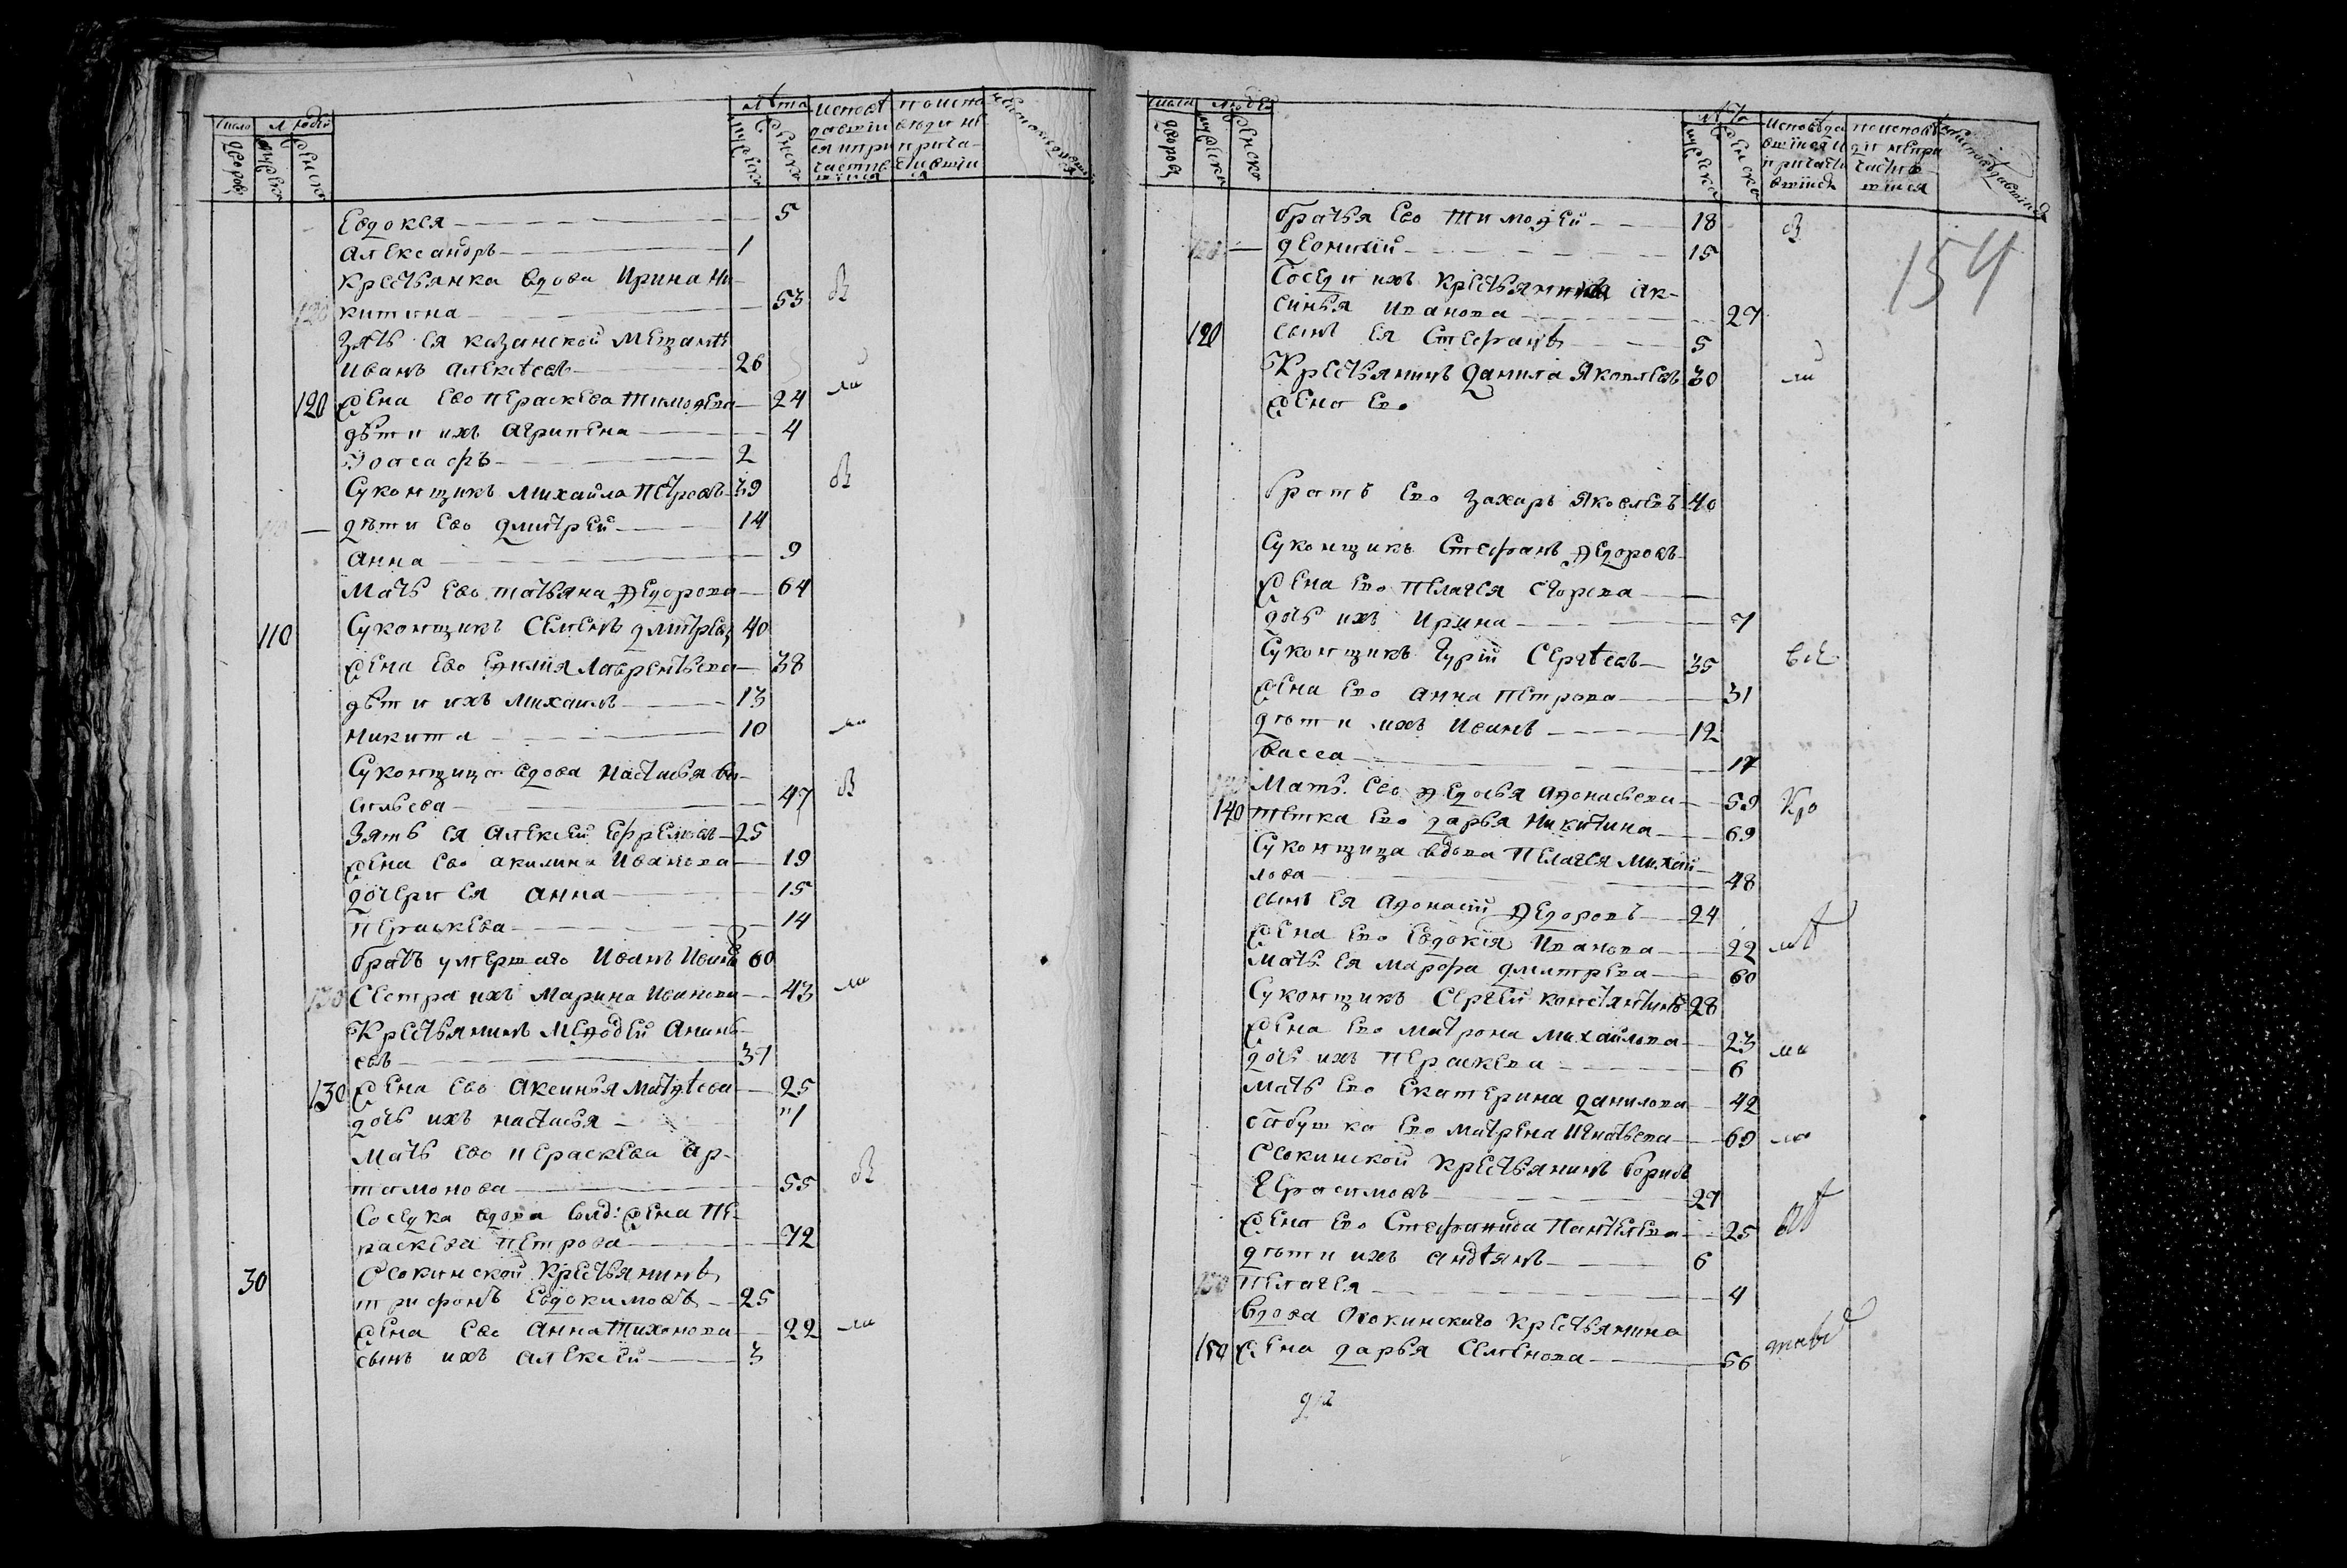 число
людей
лѣта
дворовъ
мужеска
женска
мужеска
женска
исповѣ
давшии
ся и при
частив
шиися
Евдокея 5
Александръ 1
Крестьянка вдова Ирина Ни
китина 53
Зять ея казанской мещанинъ
Иванъ Алексѣевъ 26
120 жена ево Параскева Тимофѣева 24
дѣти ихъ Агрипена 4
Иоасафъ 2
Суконщикъ Михайла Петровъ 39
дѣти ево Дмитрей 14
Анна 9
Мать ево Татьяна Федорова 64
110 Суконщикъ Семенъ Дмитрев 40
жена ево Лаврентьева 38
дѣти ихъ Михаилъ 13
Никита 10
Суконщица вдова Настасья Ва
сильева 47
Зять ея Алексей Ефремовъ 25
жена ево Акилина Иванова 19
дочери ея Анна 15
Параскева 14
братъ умершаго Иванъ Ивановъ 60
Сестра ихъ Марина Иванова 43
Крестьянинъ Мефодей Анань
евъ 31
130 жена ево Аксинья Матфѣева 25
дочь ихъ Настасья 1
Мать ево Параскева Ар
тамонова 55
Соседка вдова солд: жена Па
раскева Петрова 72
30 Осокинской Крестьянинъ
Трифонъ Евдокимовъ 25
жена ево Анна Тихонова 22
сынъ ихъ Алексей 3
числа
людей
лѣта
дворовъ
мужеска
женска
мужеска
женска
исповѣда
вшиися и
причасти
вшиися
154
братья ево Тимофей 18
Деонисий 15
Соседи ихъ Крестьянка Ак
синья Иванова 27
120 сынъ ея Стефанъ 5
Крестьянинъ Данила Яковлевъ 30
жена ево
братъ ево Захаръ Яковлевъ 40
Суконщикъ Стефанъ Федоровъ
жена ево Пелагея Егорева
дочь ихъ Ирина 7
Суконщикъ Гурий Сергѣевъ 35 всѣ
жена ево Анна Петрова 31
дѣти ихъ Иванъ 12
Васса 17
Мать ево Федосья Афонасьева 59
140 тетка ево Дарья Никитина 69
Суконщица вдова Пелагея Михай
лова 48
сынъ ея Афонасий Федоровъ 24
жена ево Евдокия Иванова 22
Мать ея Марфа Дмитрева 60
Суконщикъ Сергей Константиновъ 28
жена ево Матрона Михайлова 23
дочь ихъ Параскева 6
Мать ево Екатерина Данилова 42
бабушка ево Матрена Игнатьева 69
Осокинской Крестьянинъ Борисъ
Герасимовъ 27
жена ево Стефанида Пантелева 25
дѣти ихъ 6
Пелагея 4
Вдова Осокинскаго Крестьянина
150 жена Дарья Семенова 56